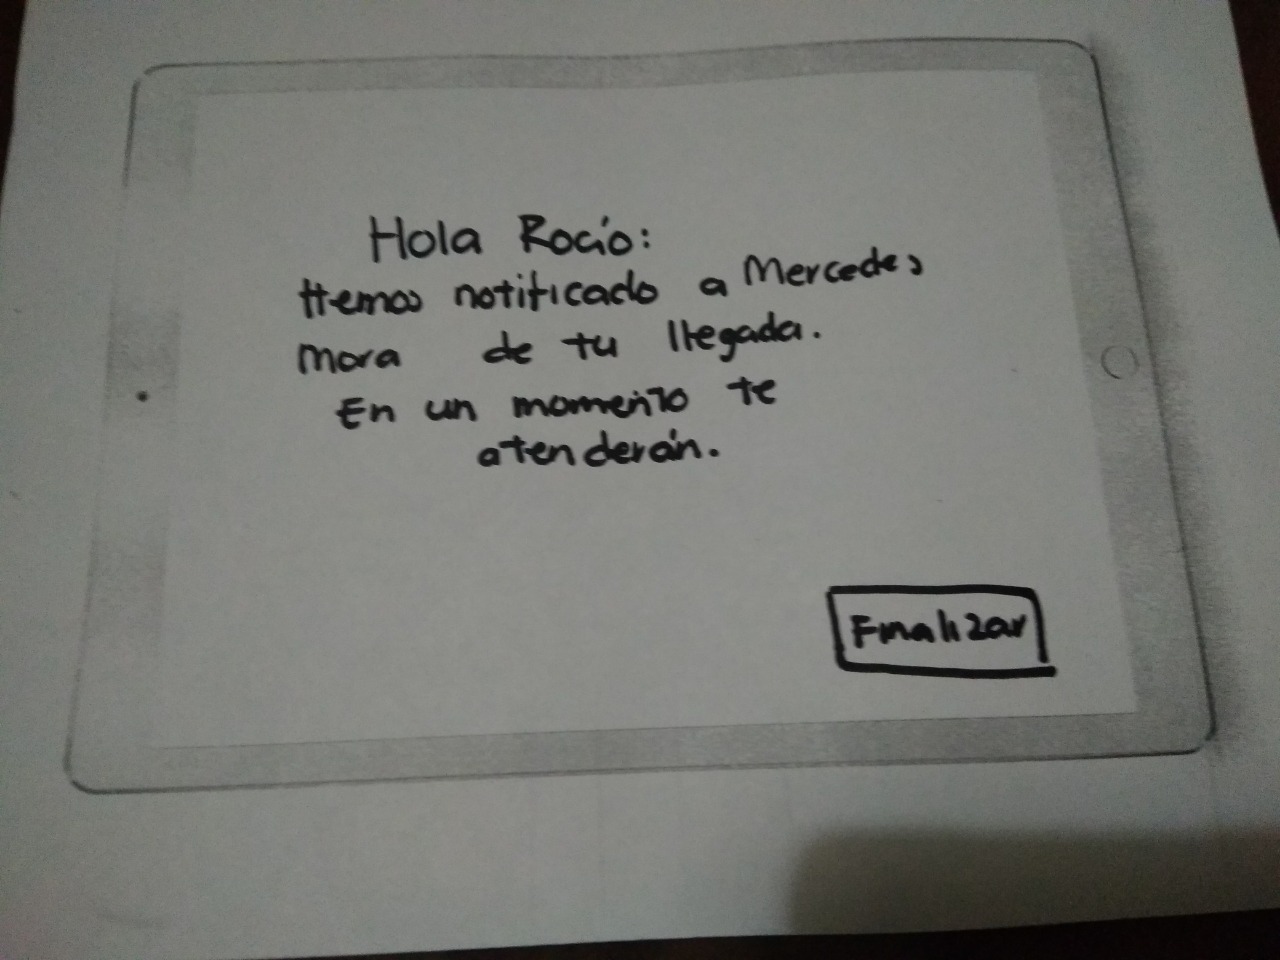 Hola Rocío:
Hemos notificado a Mercedes
Mora de tu llegada.
En un momento te
atenderán.
Finalizar